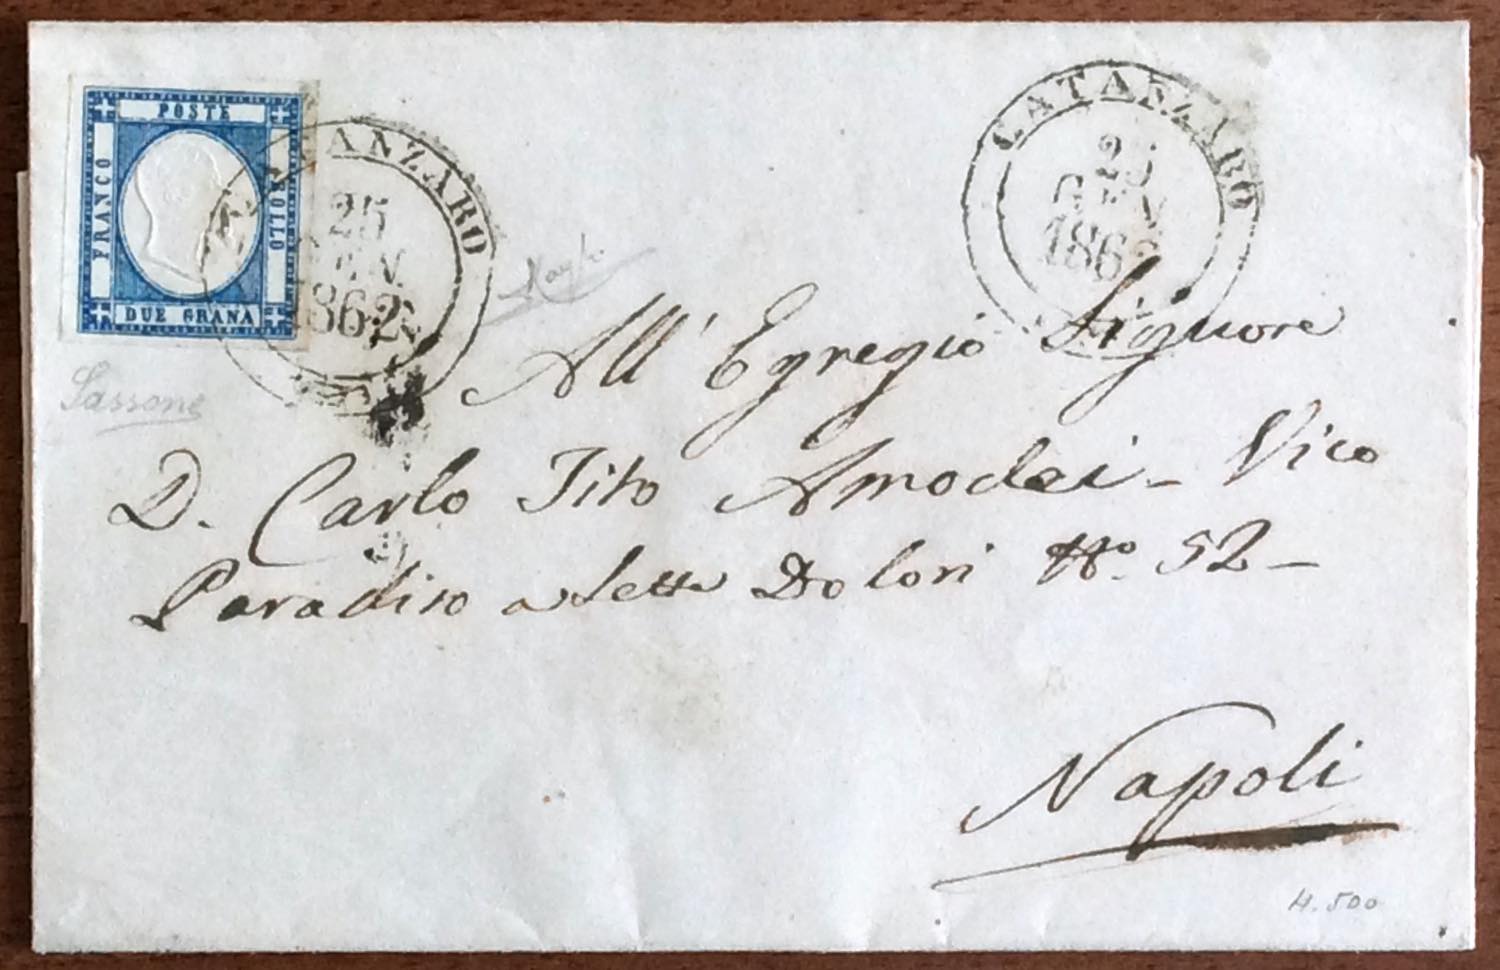 POSTE
FRANCO
BOLLO
DUE GRANA
CATANZARO
25
GEN
1862
CATANZARO
25
GEN
186
Sassone
All' Egregio Signore
D. Carlo Tito Amodei - Vico
Paradiso a Sette Dolori No. 52 -
Napoli
4.500